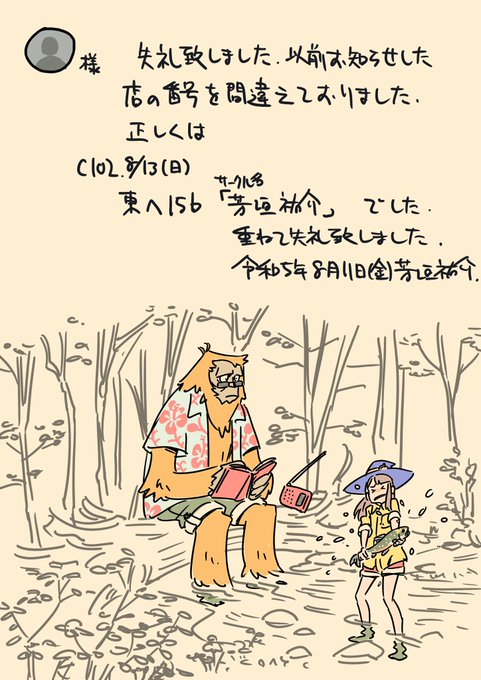 様 失礼致しました. 以前お知らせした
店の番号を間違えておりました.
正しくは
C102. 8/13(日)
東ヘ15b サークル名「芳垣祐介」 でした.
重ねて失礼致しました.
令和5年8月11日(金)芳垣祐介.